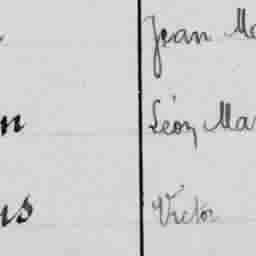 Jean Ma
n Léon Ma
us Victor